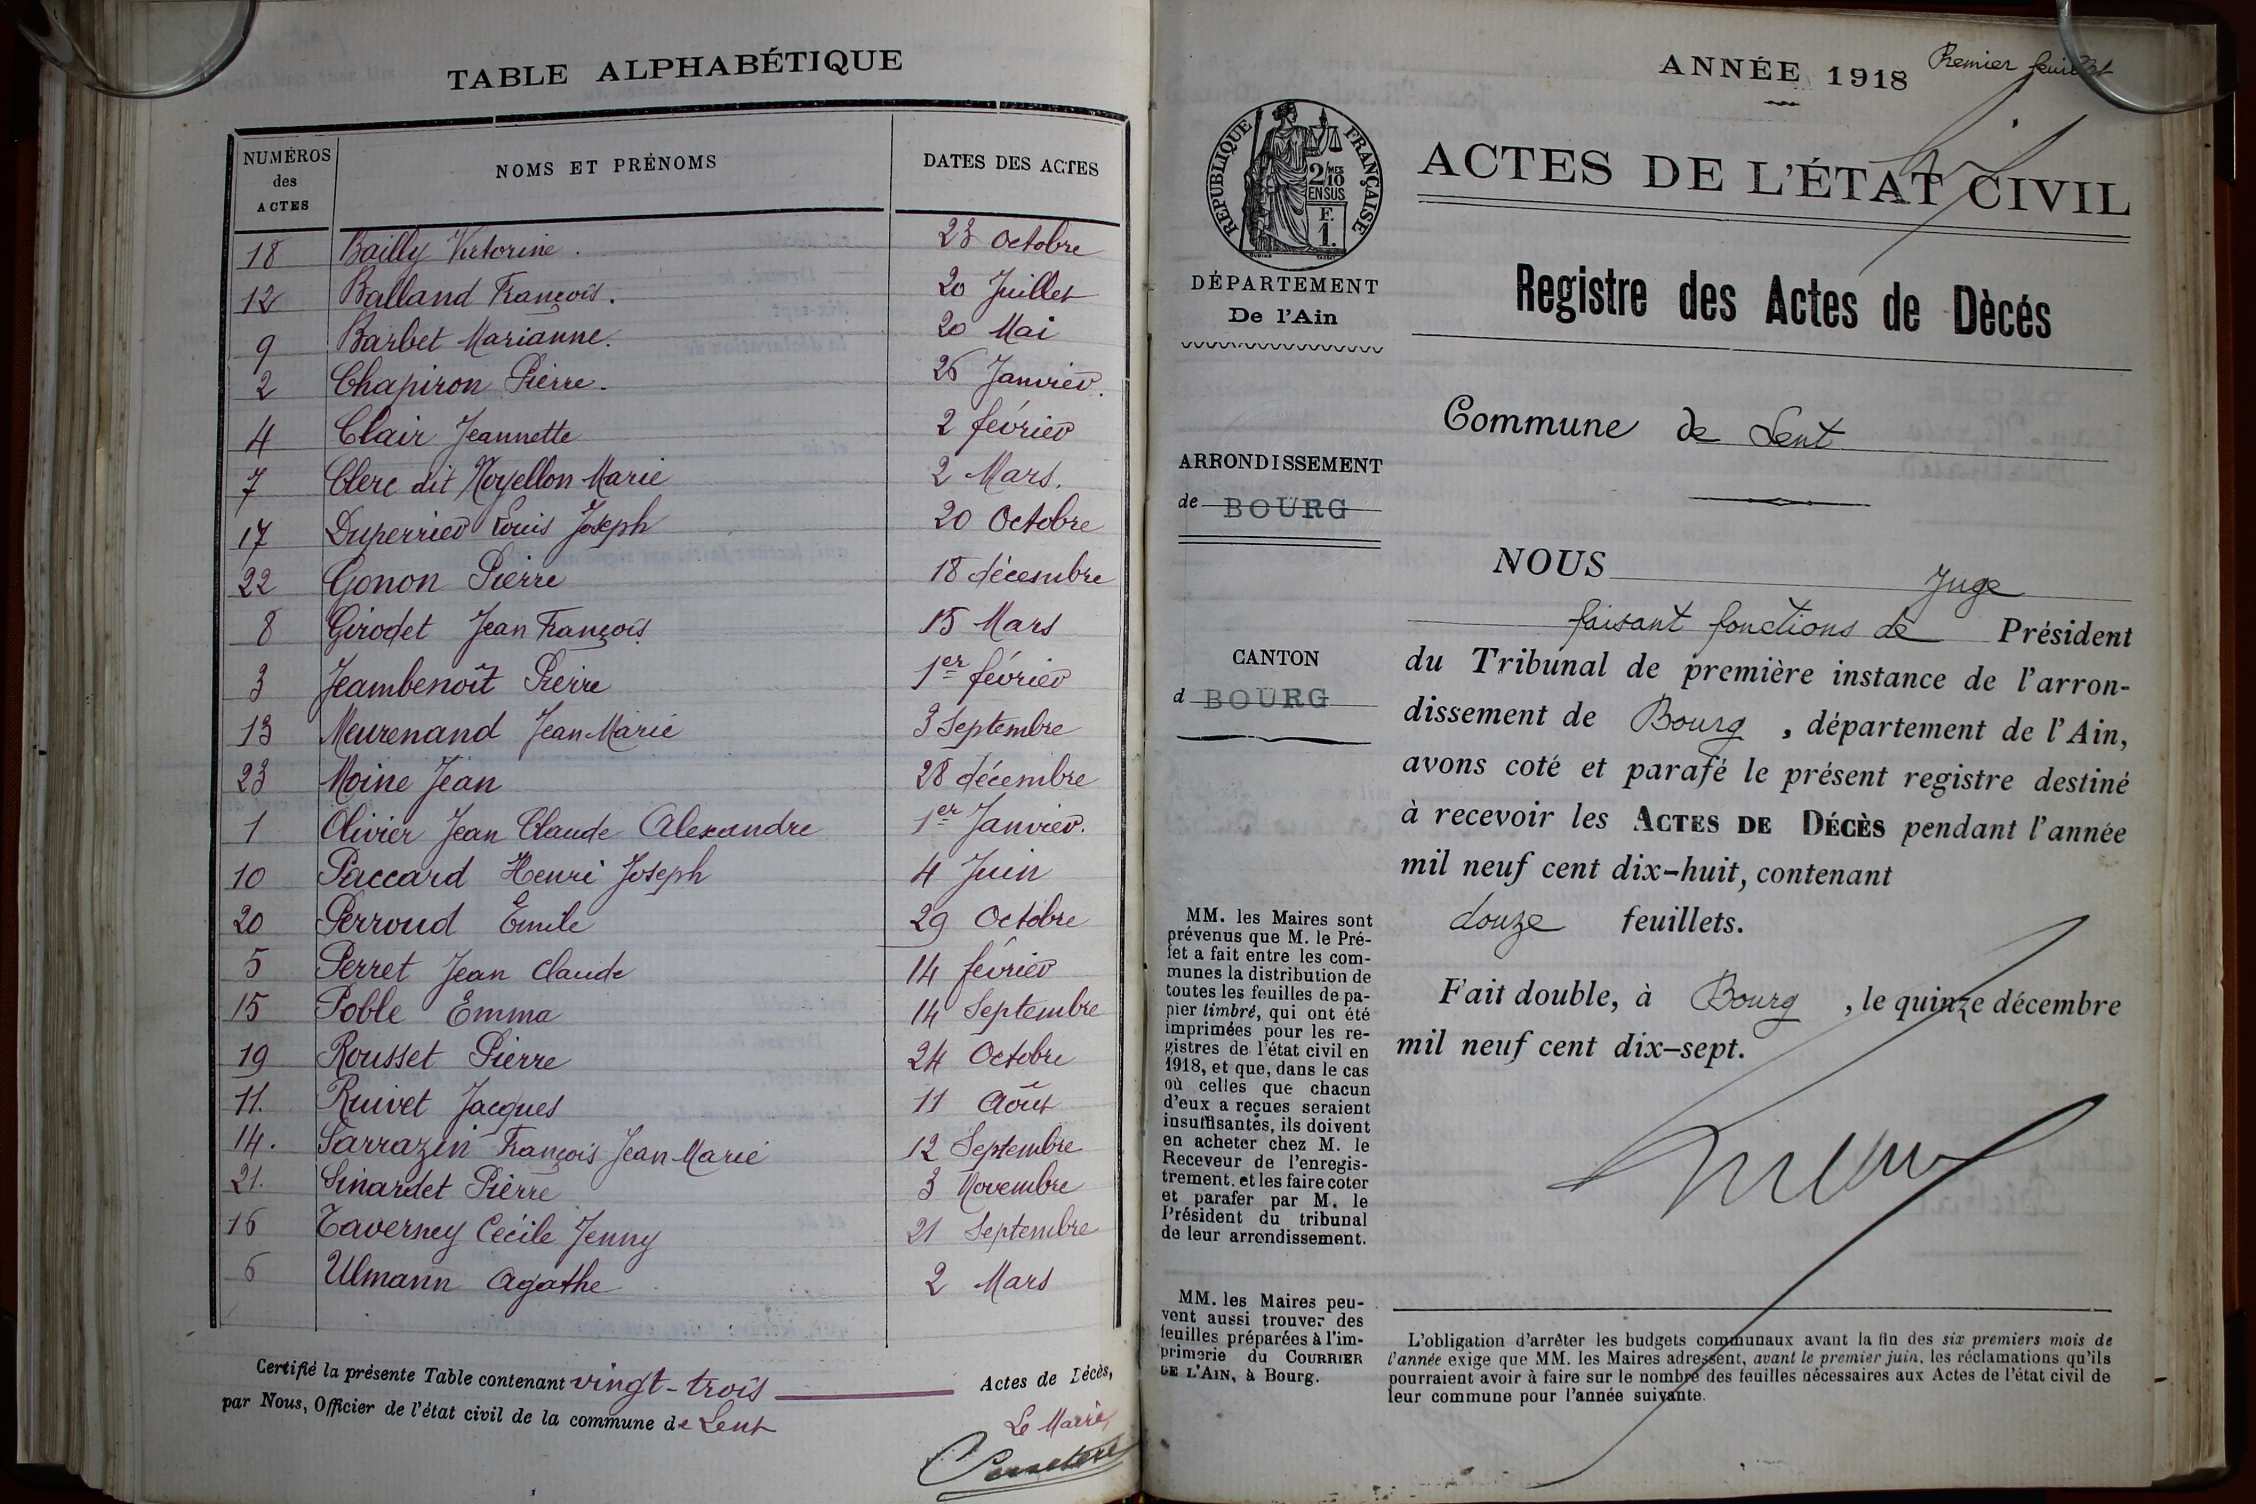 TABLE ALPHABÉTIQUE
NUMÉROS des ACTES
NOMS ET PRÉNOMS
DATES DES ACTES
18 Bailly Victorine. 23 Octobre
12 Balland François. 20 Juillet
9 Barbet Marianne. 20 Mai
2 Chapiron Pierre. 26 Janvier.
4 Clair Jeannette 2 février
7 Clerc dit Noyellon Marie 2 Mars.
17 Duperrier Louis Joseph 20 Octobre
22 Gonon Pierre 18 décembre
8 Girodet Jean François 15 Mars
3 Jeambenoît Pierre 1er février
13 Meurenand Jean Marie 3 Septembre
23 Moine Jean 28 décembre
1 Olivier Jean Claude Alexandre 1er Janvier.
10 Paccard Henri Joseph 4 Juin
20 Perroud Emile 29 Octobre
5 Perret Jean Claude 14 février
15 Poble Emma 14 Septembre
19 Rousset Pierre 24 Octobre
11. Ruivet Jacques 11 Août
14. Sarrazin François Jean Marie 12 Septembre
21. Sinardet Pierre 3 Novembre
16 Taverney Cécile Jenny 21 Septembre
6 Ulmann Agathe 2 Mars
Certifié la présente Table contenant vingt-trois Actes de Décès,
par Nous, Officier de l'état civil de la commune de Lent
Le Maire
ANNÉE 1918
Premier feuillet
RÉPUBLIQUE FRANÇAISE
2/10 MES
EN SUS
F.
1.
DÉPARTEMENT
De l'Ain
ARRONDISSEMENT
de BOURG
CANTON
d BOURG
MM. les Maires sont
prévenus que M. le Pré-
fet a fait entre les com-
munes la distribution de
toutes les feuilles de pa-
pier timbré, qui ont été
imprimées pour les re-
gistres de l'état civil en
1918, et que, dans le cas
où celles que chacun
d'eux a reçues seraient
insuffisantes, ils doivent
en acheter chez M. le
Receveur de l'enregis-
trement, et les faire coter
et parafer par M. le
Président du tribunal
de leur arrondissement.
MM. les Maires peu-
vent aussi trouver des
feuilles préparées à l'im-
primerie du COURRIER
DE L'AIN, à Bourg.
ACTES DE L'ÉTAT CIVIL
Registre des Actes de Dècés
Commune de Lent
NOUS Juge
faisant fonctions de Président
du Tribunal de première instance de l'arron-
dissement de Bourg, département de l'Ain,
avons coté et parafé le présent registre destiné
à recevoir les ACTES DE DÉCÈS pendant l'année
mil neuf cent dix-huit, contenant
douze feuillets.
Fait double, à Bourg, le quinze décembre
mil neuf cent dix-sept.
L'obligation d'arrêter les budgets communaux avant la fin des six premiers mois de
l'année exige que MM. les Maires adressent, avant le premier juin, les réclamations qu'ils
pourraient avoir à faire sur le nombre des feuilles nécessaires aux Actes de l'état civil de
leur commune pour l'année suivante.